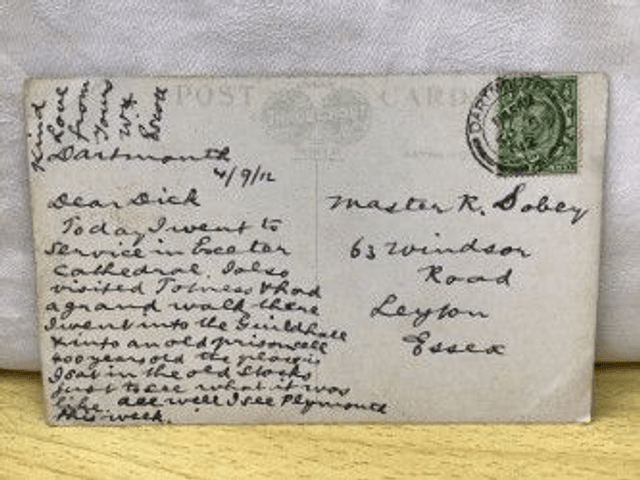 POST CARD
DARTMOUTH
Kind
love
from
your
Dartmouth
4/9/12
Dear Dick
Today I went to
service in Exeter
Cathedral. I also
visited Totness & had
a grand walk there
I went into the Guildhall
& into an old prison cell
400 years old the place is
I sat in the old Stocks
just to see what it was
like. all well I see Plymouth
this week.
Master R. Sobey
63 Windsor
Road
Leyton
Essex